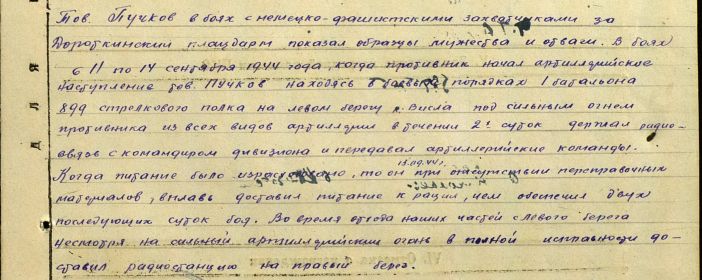 Тов. Пучков в боях с немецко-фашистскими захватчиками за
плацдарм показал образцы мужества и отваги. В боях
с 11 по 14 сентября 1944 года, когда противник начал артиллерийское
наступление тов. Пучков находясь в боевых порядках 1 батальона
899 стрелкового полка на левом берегу р. Висла под сильным огнем
противника из всех видов артиллерии в течении 2х суток держал радио-
связь с командиром дивизиона и передавал артиллерийские команды.
13.09.44г.
Когда питание было израсходовано, то он при отсутствии переправочных
материалов, вплавь доставил питание к рации, чем обеспечил двух
последующих суток боя. Во время отхода наших частей с левого берега
несмотря на сильный артиллерийский огонь в полной исправности до-
ставил радиостанцию на правый берег.
для